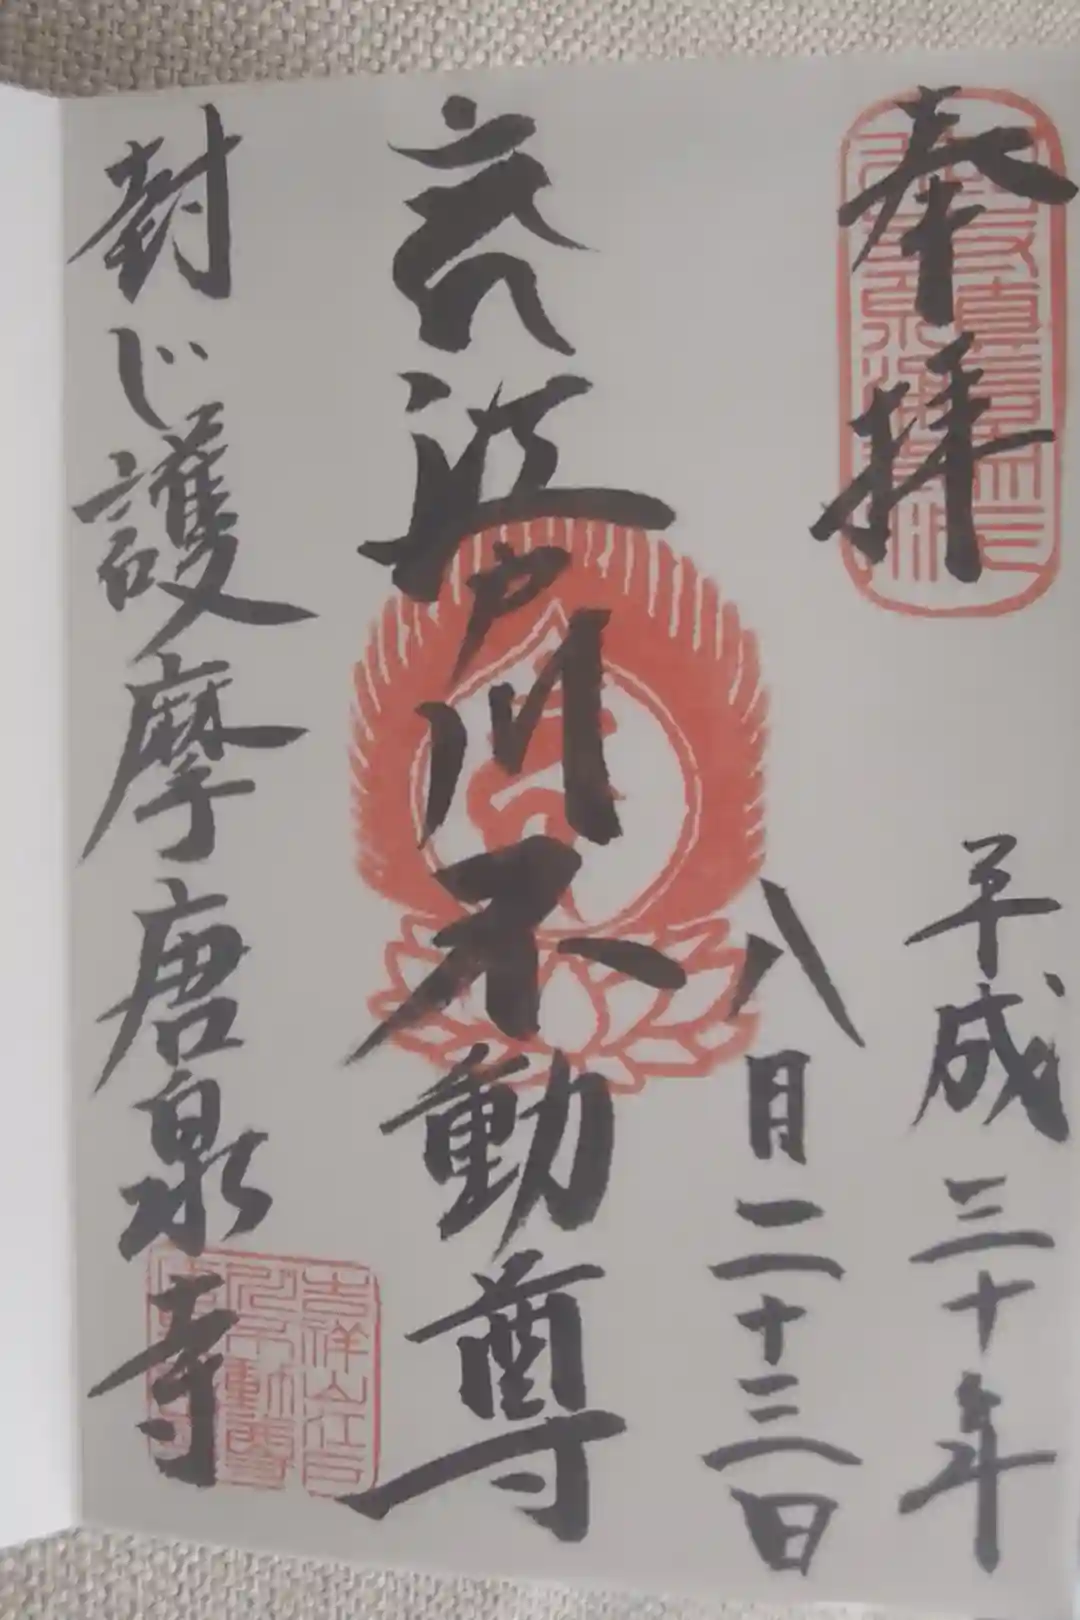 奉拝
平成三十年
八月二十三日
江戸川不動尊
封じ護摩唐泉寺
吉祥山江戸
川不動尊